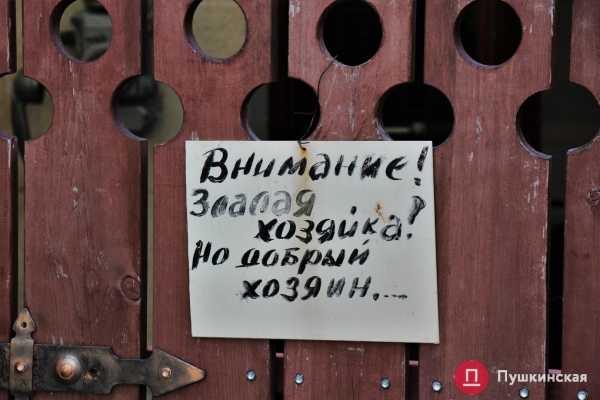 Внимание!
хозяйка!
Но добрый
хозяин...
Пушкинская